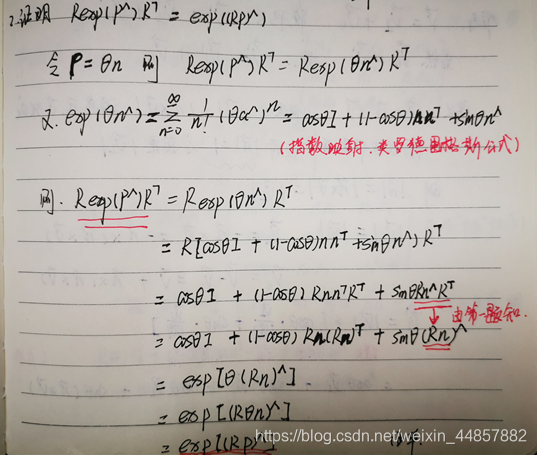 2.证明 Rexp(P^)R^T = exp((Rp)^)
令 P = θn 则 Rexp(P^)R^T = Rexp(θn^)R^T
又 exp(θn^) = ∑_{n=0}^{∞} 1/n! (θα^)^n = cosθI + (1-cosθ)nn^T + sinθn^
(指数映射.类罗德里格斯公式)
则. Rexp(P^)R^T = Rexp(θn^)R^T
= R[cosθI + (1-cosθ)nn^T + sinθn^)R^T
= cosθI + (1-cosθ)Rnn^TR^T + sinθRn^R^T
由第一题知.
= cosθI + (1-cosθ)Rn(Rn)^T + sinθ(Rn)^
= exp[θ(Rn)^]
= exp[(Rθn)^]
= exp[(Rp)^]
https://blog.csdn.net/weixin_44857882